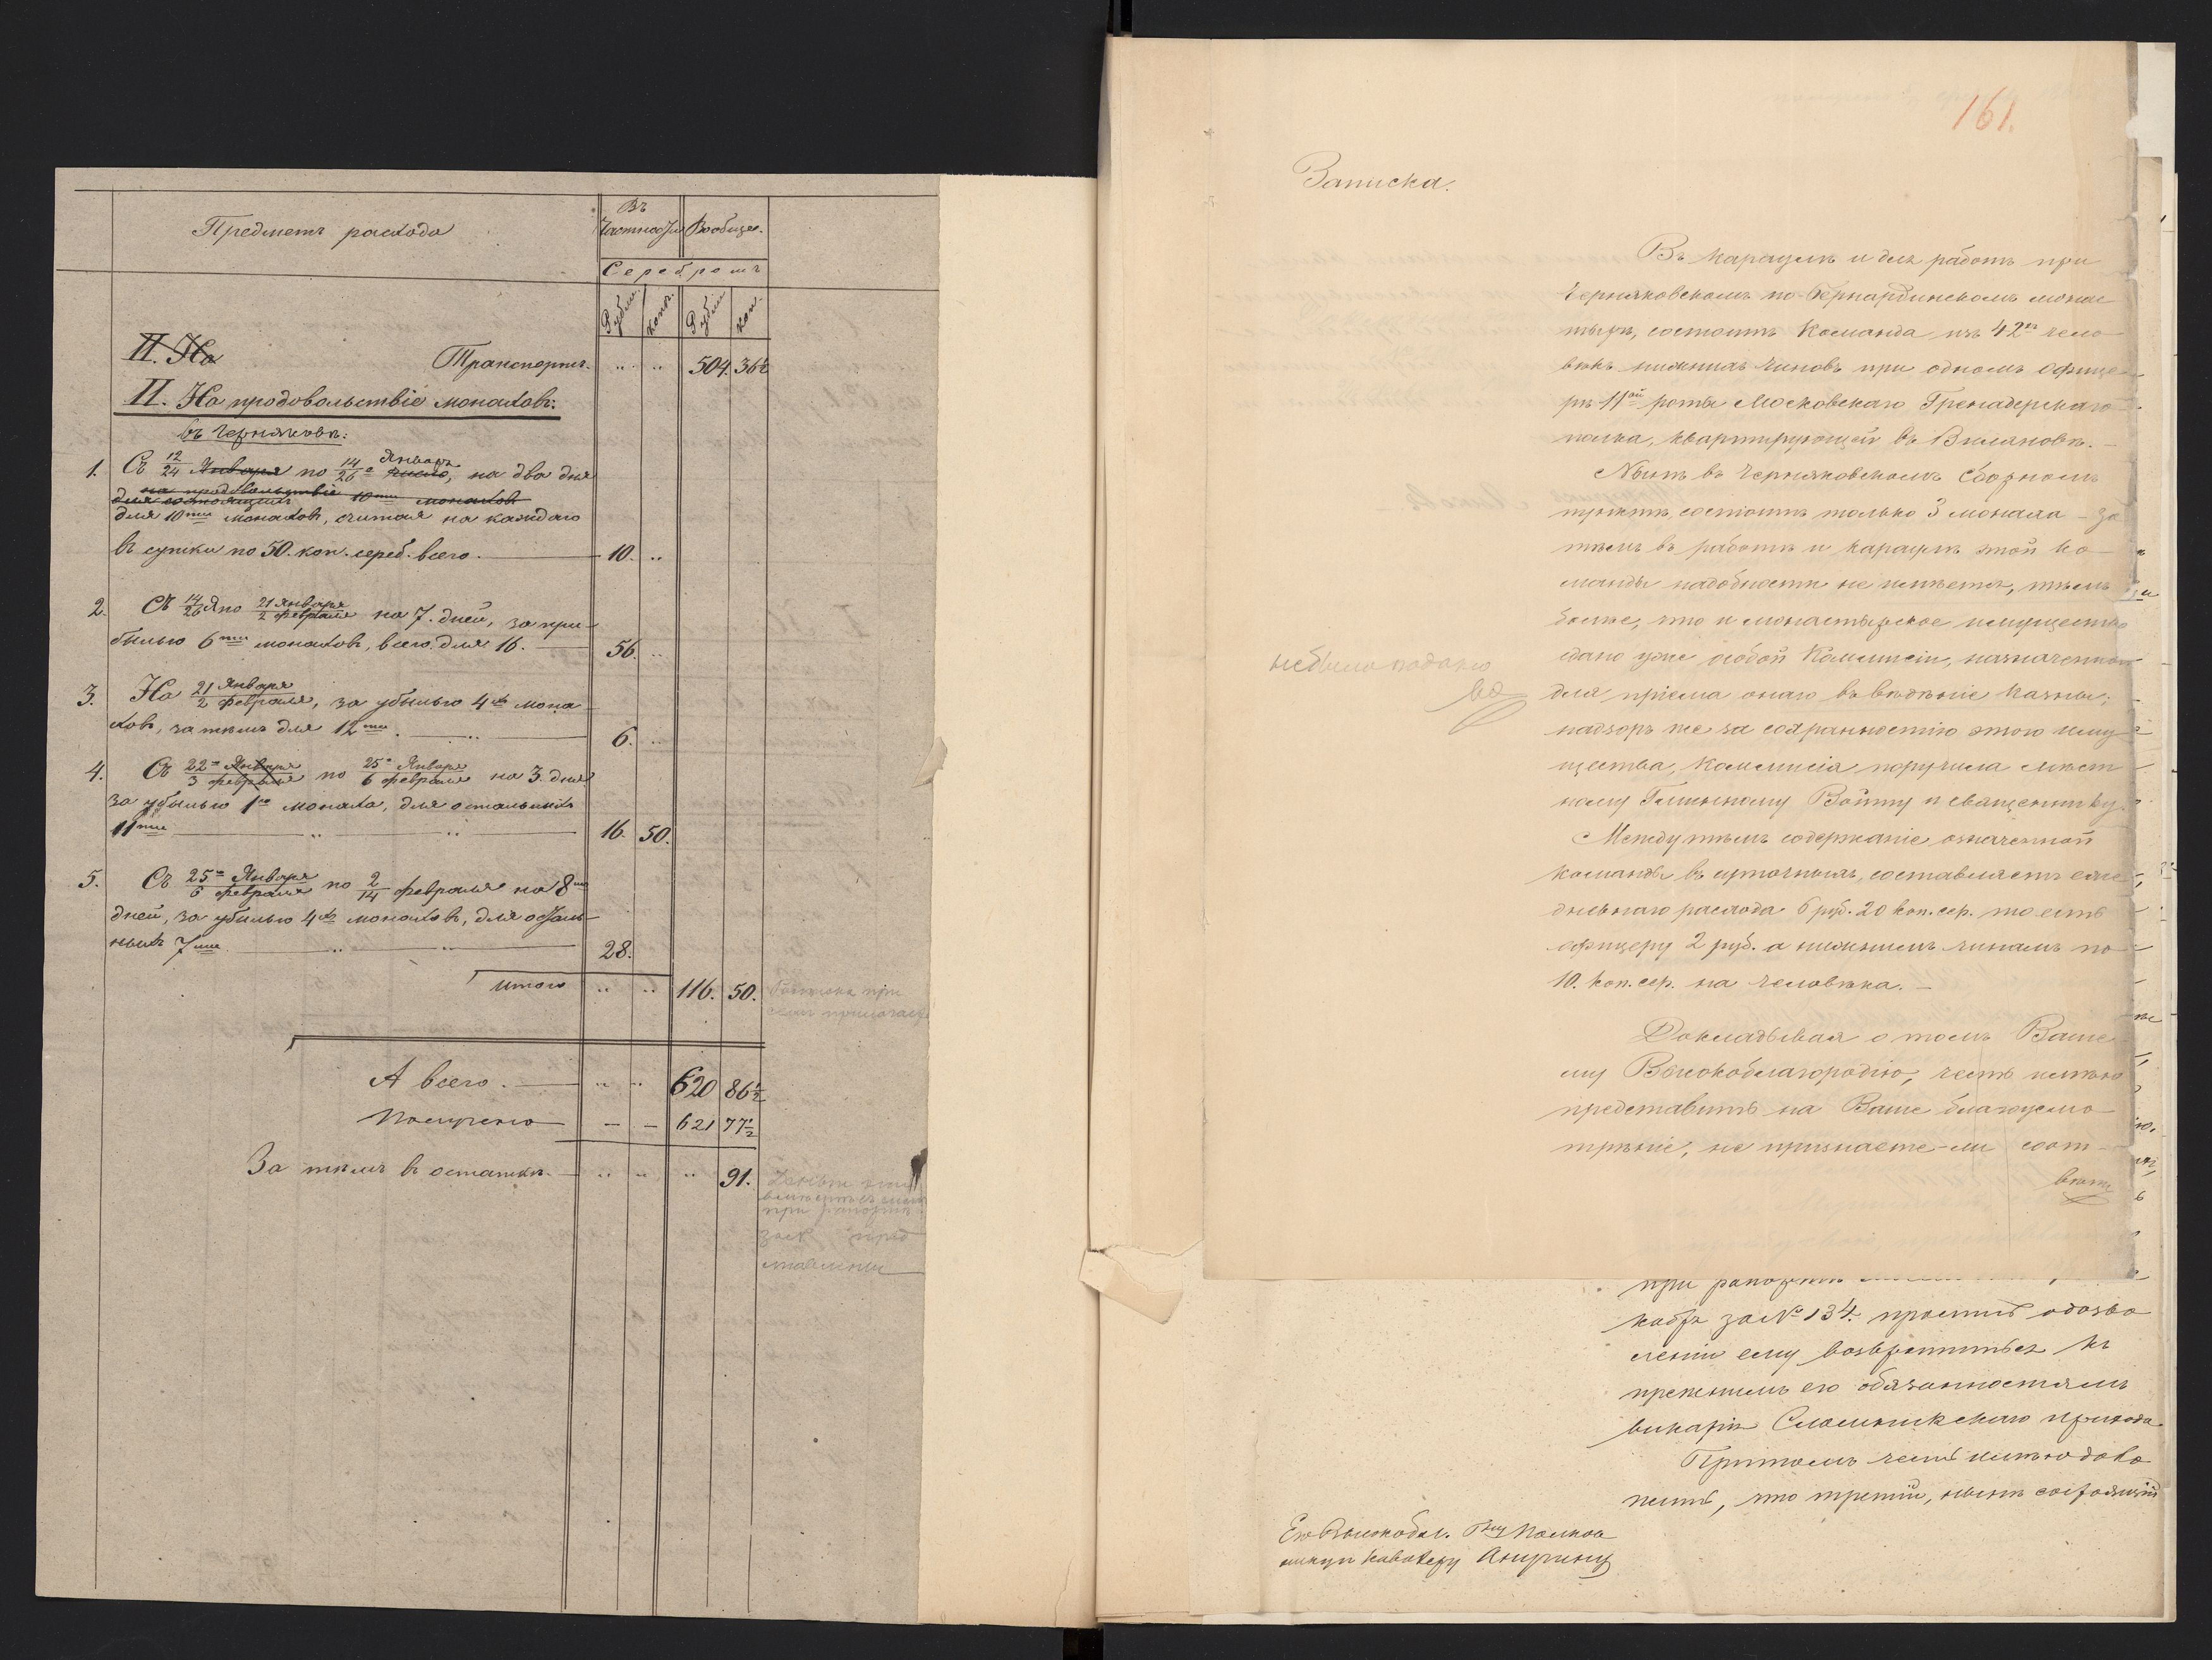 Предметъ расхода
Въ частности
Вообще.
Серебромъ
Рубли. Коп. Рубли Коп.
II. На
Транспортъ. 504. 36½
II. На продовольствіе монаховъ:
въ Черняковѣ:
1. Съ 12/24 Января по 14/26е Января число, на два дня
на продовольствіе
для состоящихъ 10ти монаховъ
для 10ти монаховъ, считая на каждаго
въ сутки по 50. коп. сереб. всего. 10. ..
2. Съ 14/26 Я по 21 Января/2 февраля на 7. дней, за при-
былью 6ти монаховъ, всего для 16. 56. ..
3. На 21 Января/2 февраля, за убылью 4хъ мона-
ховъ, за тѣмъ для 12ти. 6. ..
4. Съ 22го Января/3 февраля по 25го Января/6 февраля на 3. дня
за убылью 1го монаха, для остальныхъ
11ти 16. 50.
5. Съ 25го Января/6 февраля по 2/14 февраля на 8мь
дней, за убылью 4хъ монаховъ, для осталь-
ныхъ 7ми 28.
Итого .. .. 116. 50.
Росписка при
семъ прилагается
А всего. .. .. 620 86½
Получено — — 621 77½
За тѣмъ въ остаткѣ. .. .. .. 91.
Деньги эти
при рапортѣ
за № пред
ставлены
161.
Записка.
Въ караулѣ и для работъ при
Черняковскомъ по-Бернардинскомъ монас
тырѣ, состоитъ Команда изъ 42хъ чело
вѣкъ нижнихъ чиновъ при одномъ офице
рѣ 11ой роты Московскаго Гренадерскаго
полка, квартирующей въ Виляновѣ. —
Нынѣ въ Черняковскомъ Сборномъ
пунктѣ, состоитъ только 3 монаха — за
тѣмъ въ работѣ и караулѣ этой ко-
манды надобности не имѣется, тѣмъ
болѣе, что и монастырское имущество
сдано уже особой Коммисіи, назначенной
для пріема онаго въ вѣдѣніе казны;
надзоръ же за сохранностію этого иму
щества, Коммисія поручила мѣст
ному Гминному Войту и священнику.
Между тѣмъ содержаніе означенной
команды въ суточныхъ, составляетъ еже
дневнаго расхода 6 руб. 20 коп. сер. то есть
офицеру 2 руб. а нижнимъ чинамъ по
10. коп. сер. на человѣка. —
не было подано
Докладывая о томъ Ваше
му Высокоблагородію, честь имѣю
представить на Ваше благоусмо
трѣніе, не признаете-ли соот-
вѣтс
при рапортѣ
кабря за № 134. проситъ о дозво
леніи ему возвратиться къ
прежнимъ его обязанностямъ
викарія Сломникскаго прихода
Притомъ честь имѣю доло
жить, что третій, нынѣ состоящій
Его Высокобл. Гну Полков
нику и Кавалеру Анучину